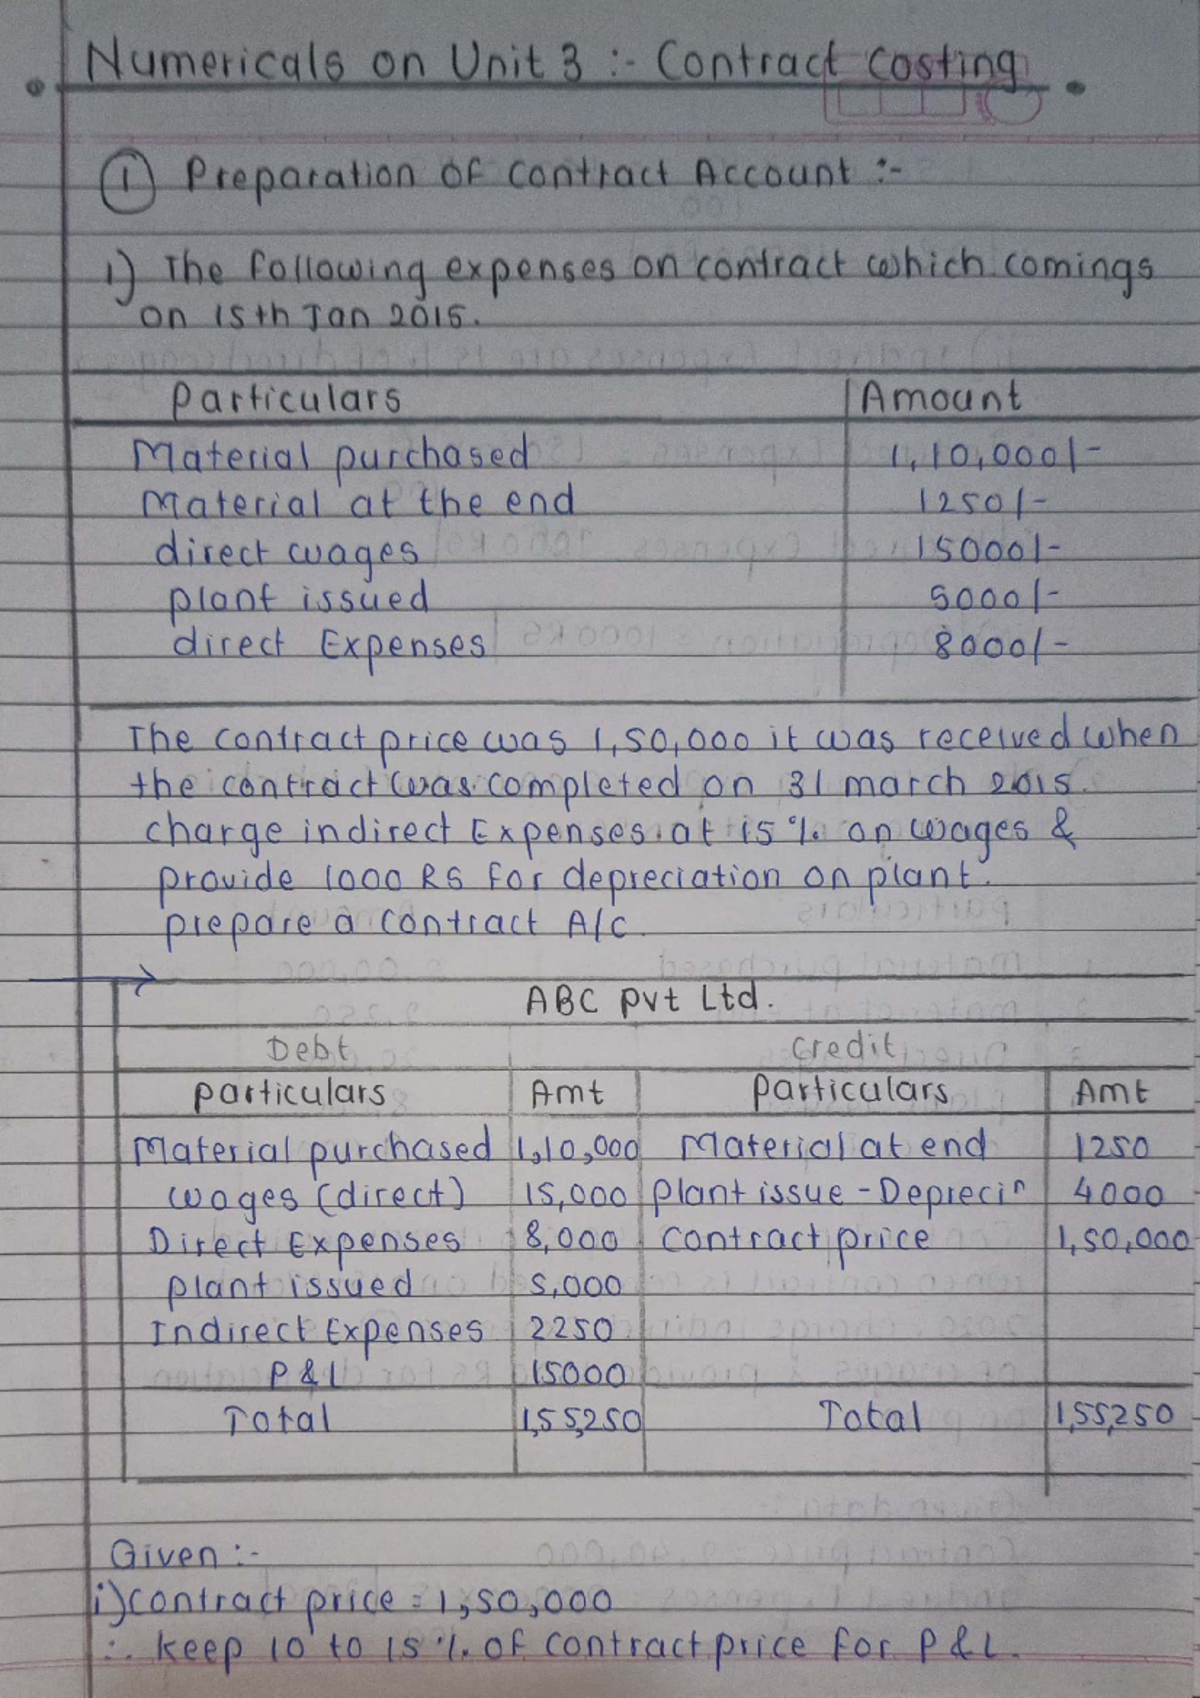 Numericals on Unit 3 :- Contract Costing
① Preparation OF Contract Account :-
1) The following expenses on contract which comings
on 15th Jan 2015.
Particulars Amount
Material purchased 1,10,000/-
Material at the end 1250/-
direct wages 15000/-
plant issued 5000/-
direct Expenses 8000/-
The contract price was 1,50,000 it was received when
the contract was completed on 31 march 2015.
charge indirect Expenses at 15 % on wages &
provide 1000 RS for depreciation on plant.
prepare a contract A/C.
ABC Pvt Ltd.
Debt Credit
Particulars Amt Particulars Amt
Material purchased 1,10,000 Material at end 1250
wages (direct) 15,000 plant issue - Deprecin 4000
Direct Expenses 8,000 contract price 1,50,000
plant issued 5,000
Indirect Expenses 2250
P & L 15000
Total 1,55,250 Total 1,55,250
Given :-
i) contract price = 1,50,000
∴ keep 10 to 15 % of contract price for P & L.